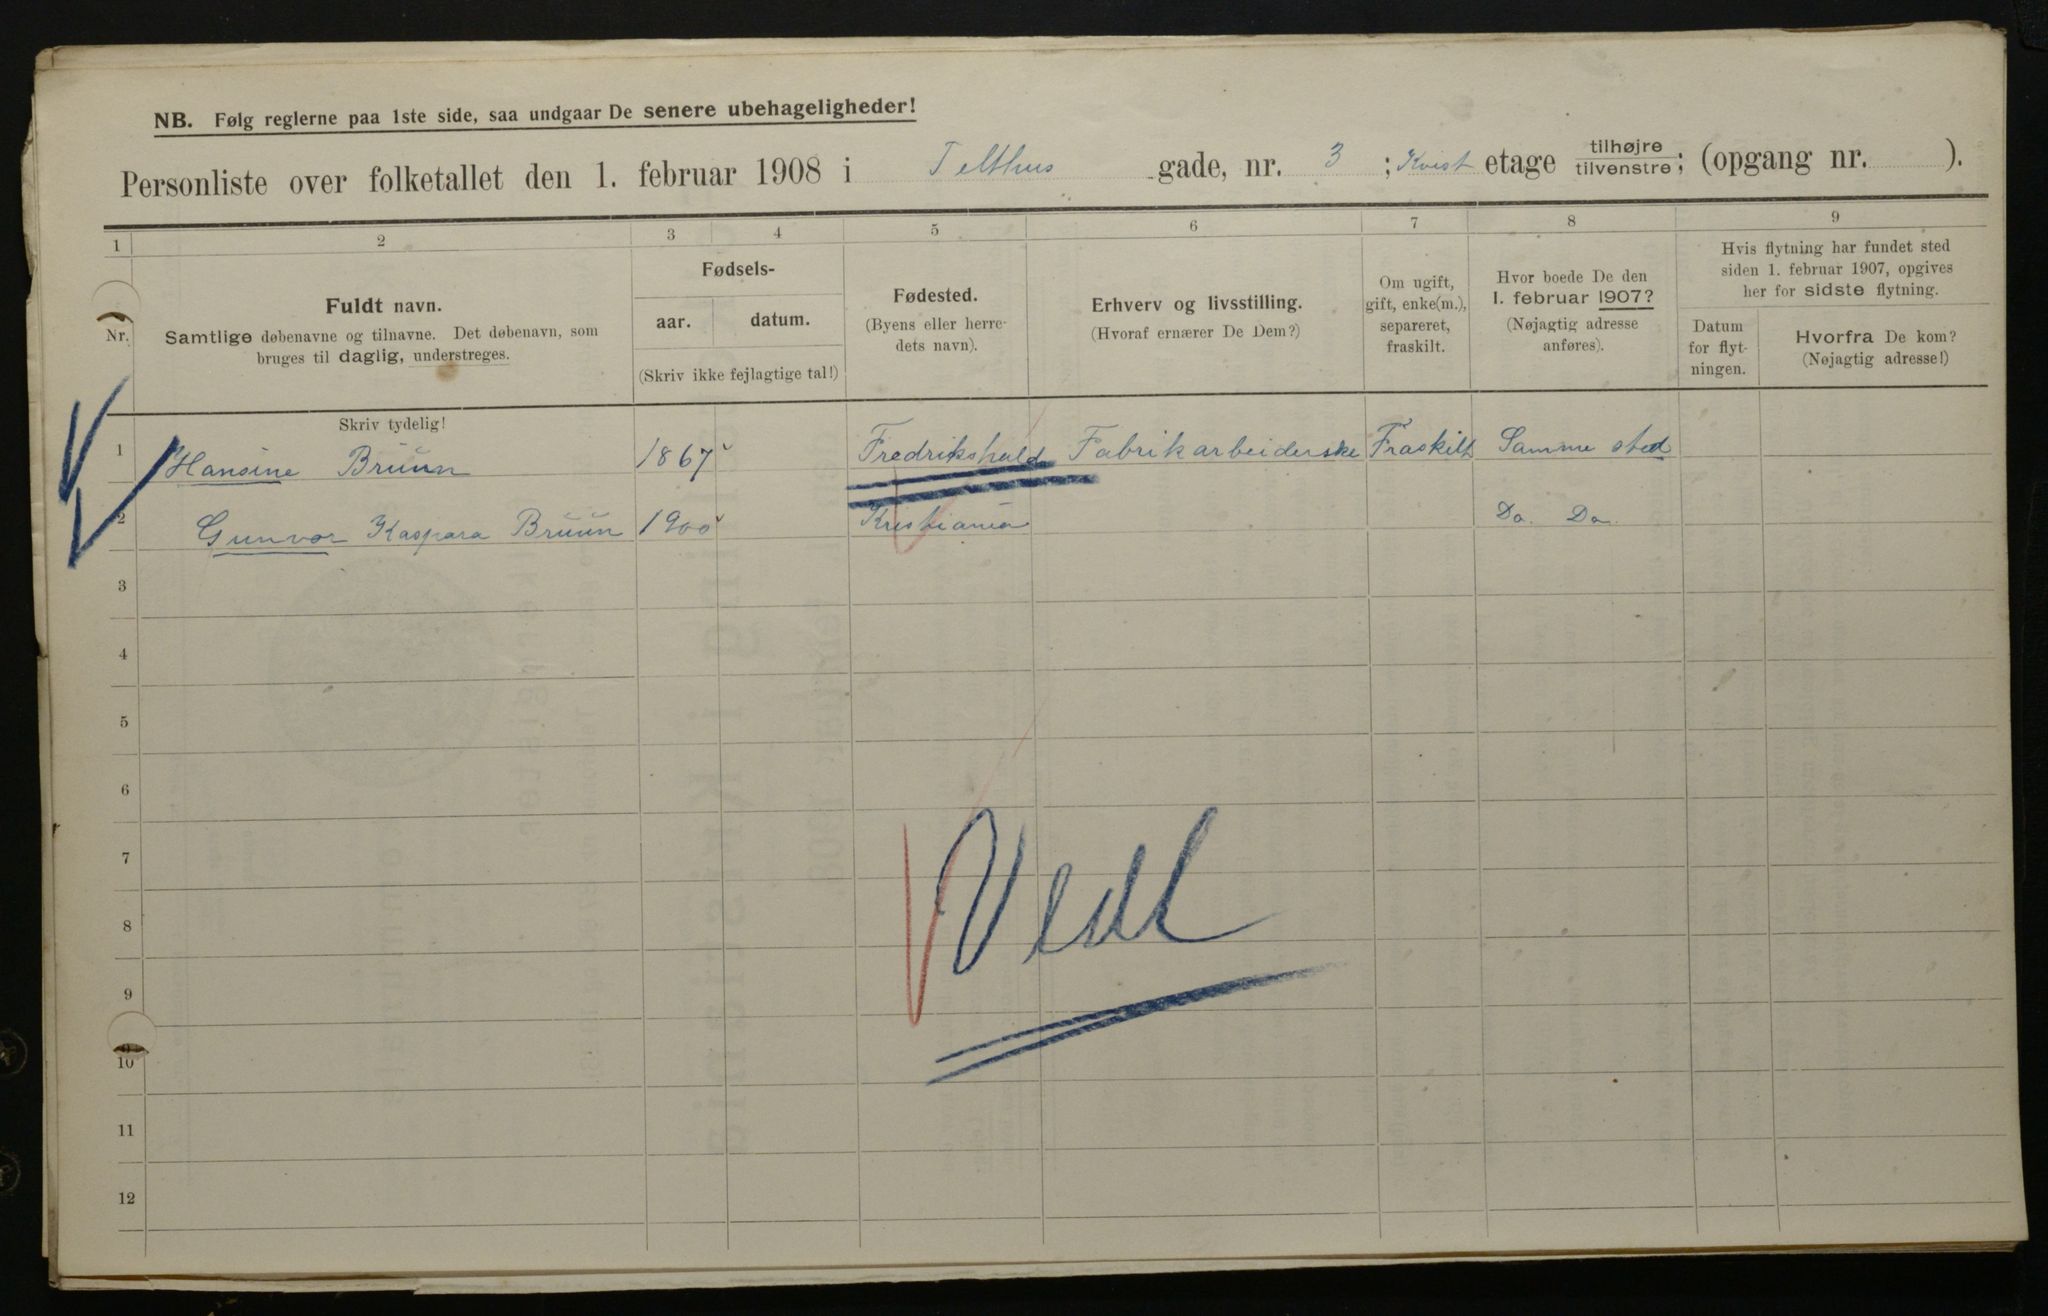 NB. Følg reglerne paa 1ste side, saa undgaar De senere ubehageligheder!
Personliste over folketallet den 1. februar 1908 i Telthus gade, nr. 3 ; Kvist etage tilhøjre tilvenstre ; (opgang nr. ).
1 2 3 4 5 6 7 8 9
Nr.
Fuldt navn.
Samtlige døbenavne og tilnavne. Det døbenavn, som
bruges til daglig, understreges.
Fødsels-
aar. datum.
(Skriv ikke fejlagtige tal!)
Fødested.
(Byens eller herre-
dets navn).
Erhverv og livsstilling.
(Hvoraf ernærer De Dem?)
Om ugift,
gift, enke(m.),
separeret,
fraskilt.
Hvor boede De den
1. februar 1907?
(Nøjagtig adresse
anføres).
Hvis flytning har fundet sted
siden 1. februar 1907, opgives
her for sidste flytning.
Datum
for flyt-
ningen.
Hvorfra De kom?
(Nøjagtig adresse!)
Skriv tydelig!
1 Hansine Bruun 1867 Fredrikshald Fabrikarbeiderske Fraskilt Samme sted
2 Gunvor Kaspara Bruun 1900 Kristiania Do. Do.
3
4
5
6
7
8
9
10
11
12